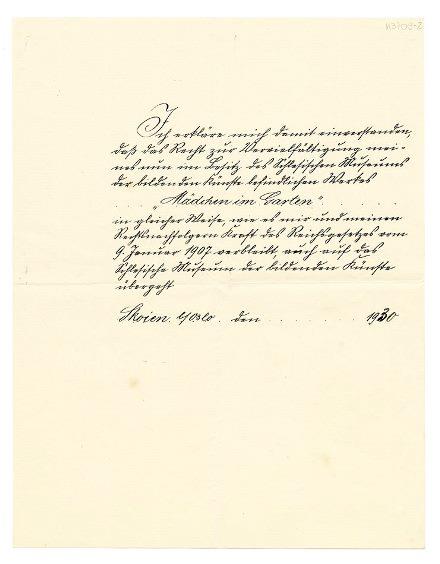 Ich erkläre mich damit einverstanden,
daß das Recht zur Vervielfältigung mei-
nes nun im Besitz des Schlesischen Museums
der bildenden Künste befindlichen Werkes
. . . „Mädchen im Garten“ . . . . . .
in gleicher Weise, wie es mir und meinen
Rechtsnachfolgern Kraft des Reichsgesetzes vom
9. Januar 1907 verbleibt, auch auf das
Schlesische Museum der bildenden Künste
übergeht
Skøien. Oslo. den . . . . . . . . 1930